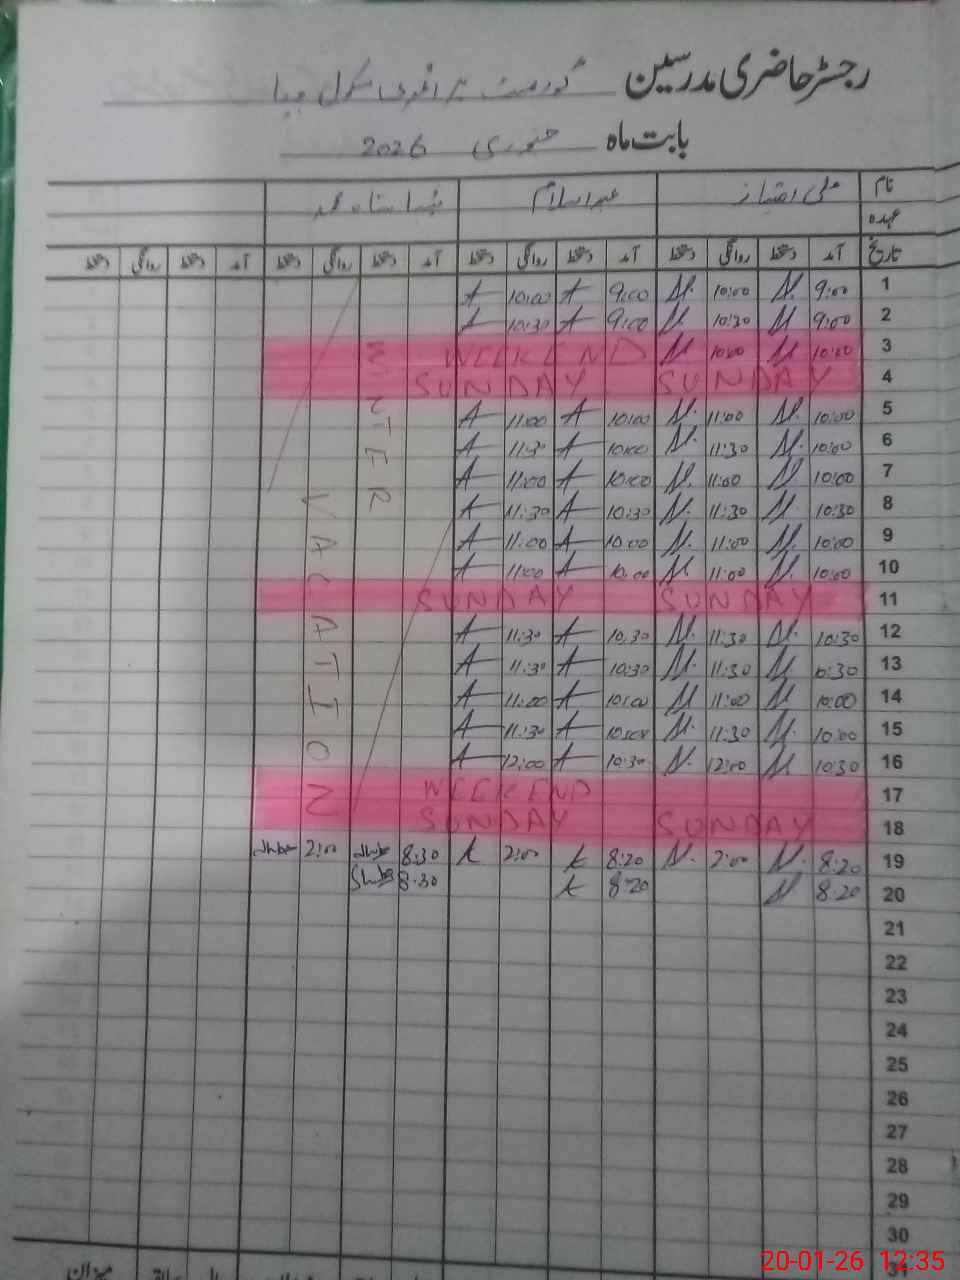 رجسٹر حاضری مدرسین گورنمنٹ پرائمری سکول
بابت ماہ جنوری 2026
نام علی امتیاز عبدالسلام
عہدہ
تاریخ آمد دستخط روانگی دستخط آمد دستخط روانگی دستخط آمد دستخط روانگی دستخط آمد دستخط روانگی دستخط
1 9:00 10:00 9:00 A 10:00 A
2 9:00 10:30 9:00 A 10:30 A
3 10:00 10:00 WEEKEND
4 SUNDAY SUNDAY
5 10:00 11:00 10:00 A 11:00 A
6 10:00 11:30 10:00 A 11:30 A
7 10:00 11:00 10:00 A 11:00 A
8 10:30 11:30 10:30 A 11:30 A
9 10:00 11:00 10:00 A 11:00 A
10 10:00 11:00 10:00 A 11:00 A
11 SUNDAY SUNDAY
12 10:30 11:30 10:30 A 11:30 A
13 10:30 11:30 10:30 A 11:30 A
14 10:00 11:00 10:00 A 11:00 A
15 10:00 11:30 10:00 A 11:30 A
16 10:30 12:00 10:30 A 12:00 A
17 WEEKEND
18 SUNDAY SUNDAY
WINTER
VACATION
19 8:20 2:00 8:20 2:00 8:30 2:00
20 8:20 8:20 8:30
21
22
23
24
25
26
27
28
29
30
31
میزان
20-01-26 12:35